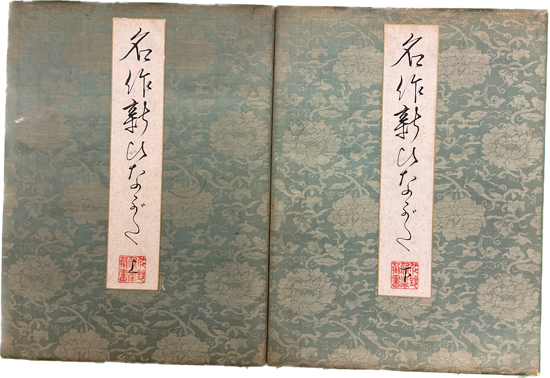 名作新ひながた
上
名作新ひながた
下